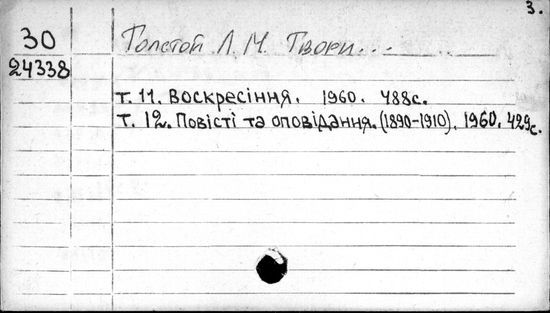 3.
30 Толстой Л.М. Твори...
24338
т. 11. Воскресіння. 1960. 488с.
т. 12. Повісті та оповідання. (1890-1910). 1960. 429с.